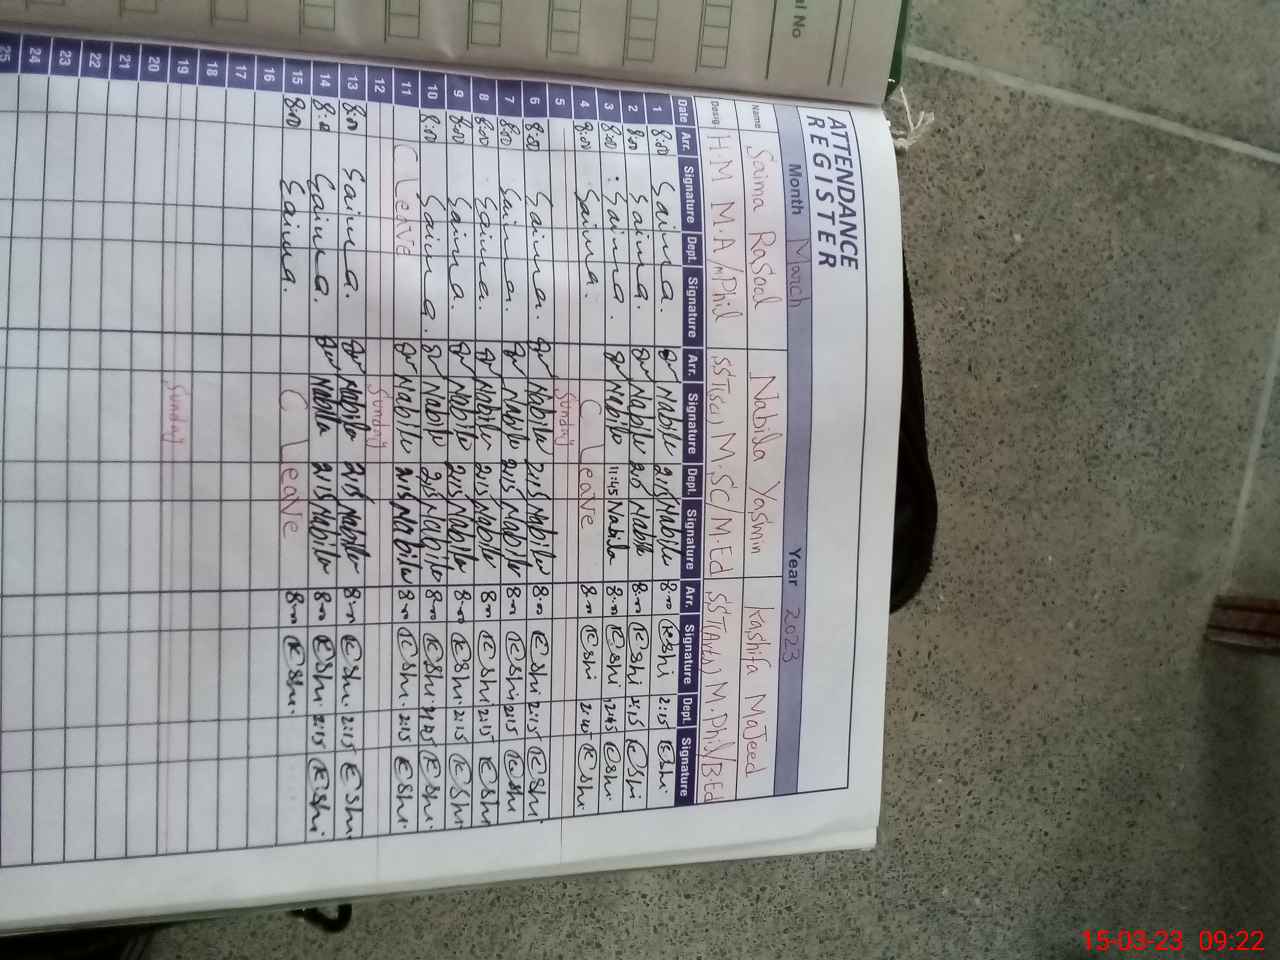 al No
ATTENDANCE
REGISTER
Month March Year 2023
Name Saima Rasool Nabila Yasmin Kashifa Majeed
Desig H.M M.A/M.Phil SST(Sci) M.SC/M.Ed SST(Arts) M.Phil/B.Ed
Date Arr. Signature Dept. Signature Arr. Signature Dept. Signature Arr. Signature Dept. Signature
1 8:00 Saima. Nabila 2:15 Nabila 8:00 Kshi 2:15 Kshi
2 8:00 Saima. Nabila 2:15 Nabila 8:00 Kshi 2:15 Kshi
3 8:00 Saima. Nabila 11:45 Nabila 8:00 Kshi 12:45 Kshi
4 8:00 Saima. C Leave 8:00 Kshi Kshi
5 Sunday
6 8:00 Saima. Nabila 2:15 Nabila 8:00 Kshi 2:15 Kshi.
7 8:00 Saima. Nabila 2:15 Nabila 8:00 Kshi 2:15 Kshi
8 8:00 Saima. Nabila 2:15 Nabila 8:00 Kshi 2:15 Kshi
9 8:00 Saima. Nabila 2:15 Nabila 8:00 Kshi. 2:15 Kshi
10 8:00 Saima. Nabila 2:15 Nabila 8:00 Kshi Kshi.
11 C Leave Nabila 2:15 Nabila 8:00 Kshi. 2:15 Kshi.
12 Sunday
13 8:00 Saima. Nabila 2:15 Nabila 8:00 Kshi. 2:15 Kshi
14 8:00 Saima. Nabila 2:15 Nabila 8:00 Kshi. 2:15 Kshi.
15 8:00 Saima. C Leave 8:00 Kshi.
16
17
18
19 Sunday
20
21
22
23
24
25
15-03-23 09:22